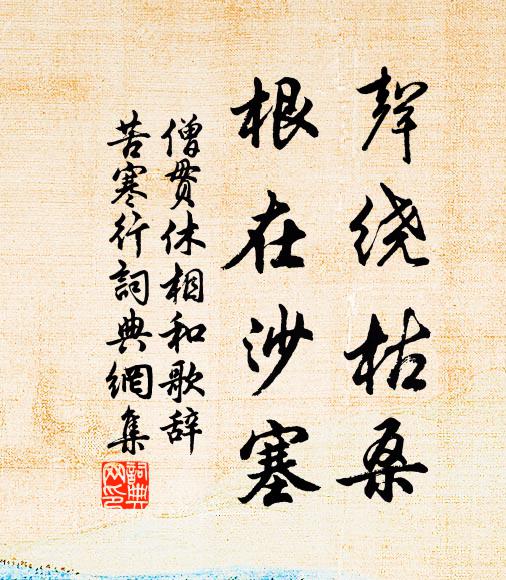 聲绕枯桑
根在沙塞
僧贯休相和歌辞
苦寒行詞典網集
詞典
网印